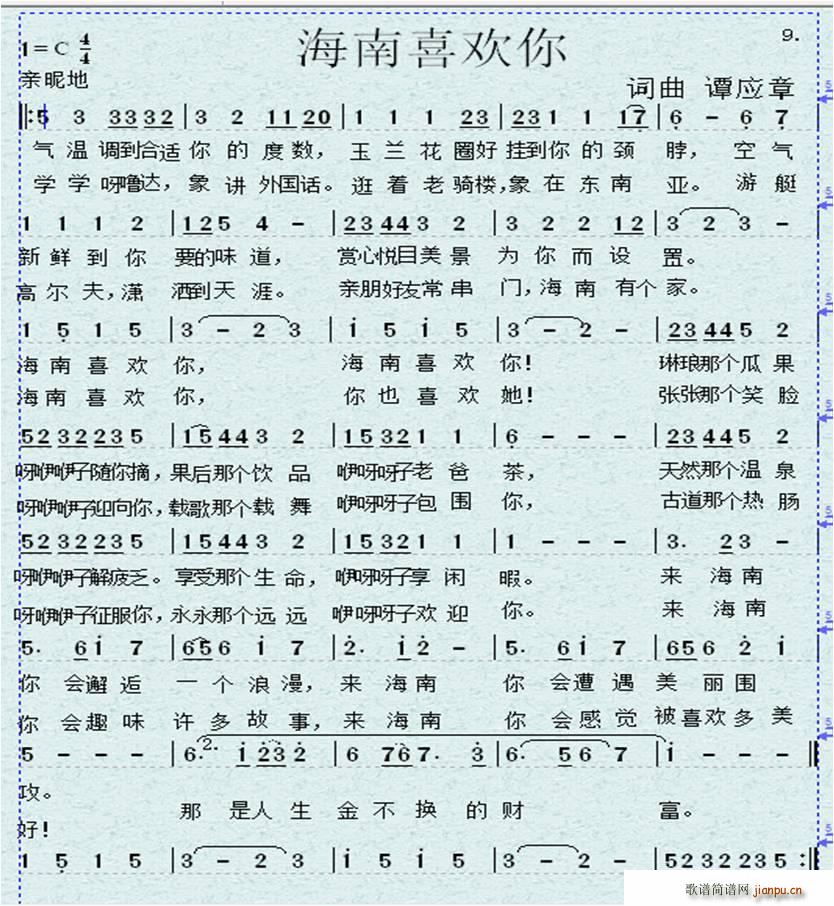 海南喜欢你
9.
1=C 4/4
亲昵地
词曲 谭应章
‖:5 3 3332|3 2 11 20|1 1 1 23|231 1 17|6 - 6 7
气温调到合适你的度数，玉兰花圈好挂到你的颈脖，空气
学学呀噜达，象讲外国话。逛着老骑楼，象在东南亚。游艇
1 1 1 2|125 4 -|23 44 3 2|3 2 2 12|3 2 3 -
新鲜到你要的味道，赏心悦目美景为你而设置。
高尔夫，潇洒到天涯。亲朋好友常串门，海南有个家。
1 5 1 5|3 - 2 3|i 5 i 5|3 - 2 -|23 44 5 2
海南喜欢你，海南喜欢你！琳琅那个瓜果
海南喜欢你，你也喜欢她！张张那个笑脸
52 32 23 5|15 44 3 2|15 32 1 1|6 - - -|23 44 5 2
呀咿咿子随你摘，果后那个饮品咿呀呀子老爸茶，天然那个温泉
呀咿咿子迎向你，载歌那个载舞咿呀呀子包围你，古道那个热肠
52 32 23 5|15 44 3 2|15 32 1 1|1 - - -|3. 23 -
呀咿咿子解疲乏。享受那个生命，咿呀呀子享闲暇。来海南
呀咿咿子征服你，永永那个远远咿呀呀子欢迎你。来海南
5. 6i 7|656 i 7|2. i2 -|5. 6i 7|656 2 i
你会邂逅一个浪漫，来海南你会遭遇美丽围
你会趣味许多故事，来海南你会感觉被喜欢多美
5 - - -|6. 2. i 232|6 767. 3|6. 56 7|i - - -‖
攻。
那是人生金不换的财富。
好！
1 5 1 5|3 - 2 3|i 5 i 5|3 - 2 -|52 32 23 5:‖
歌谱简谱网 jianpu.cn